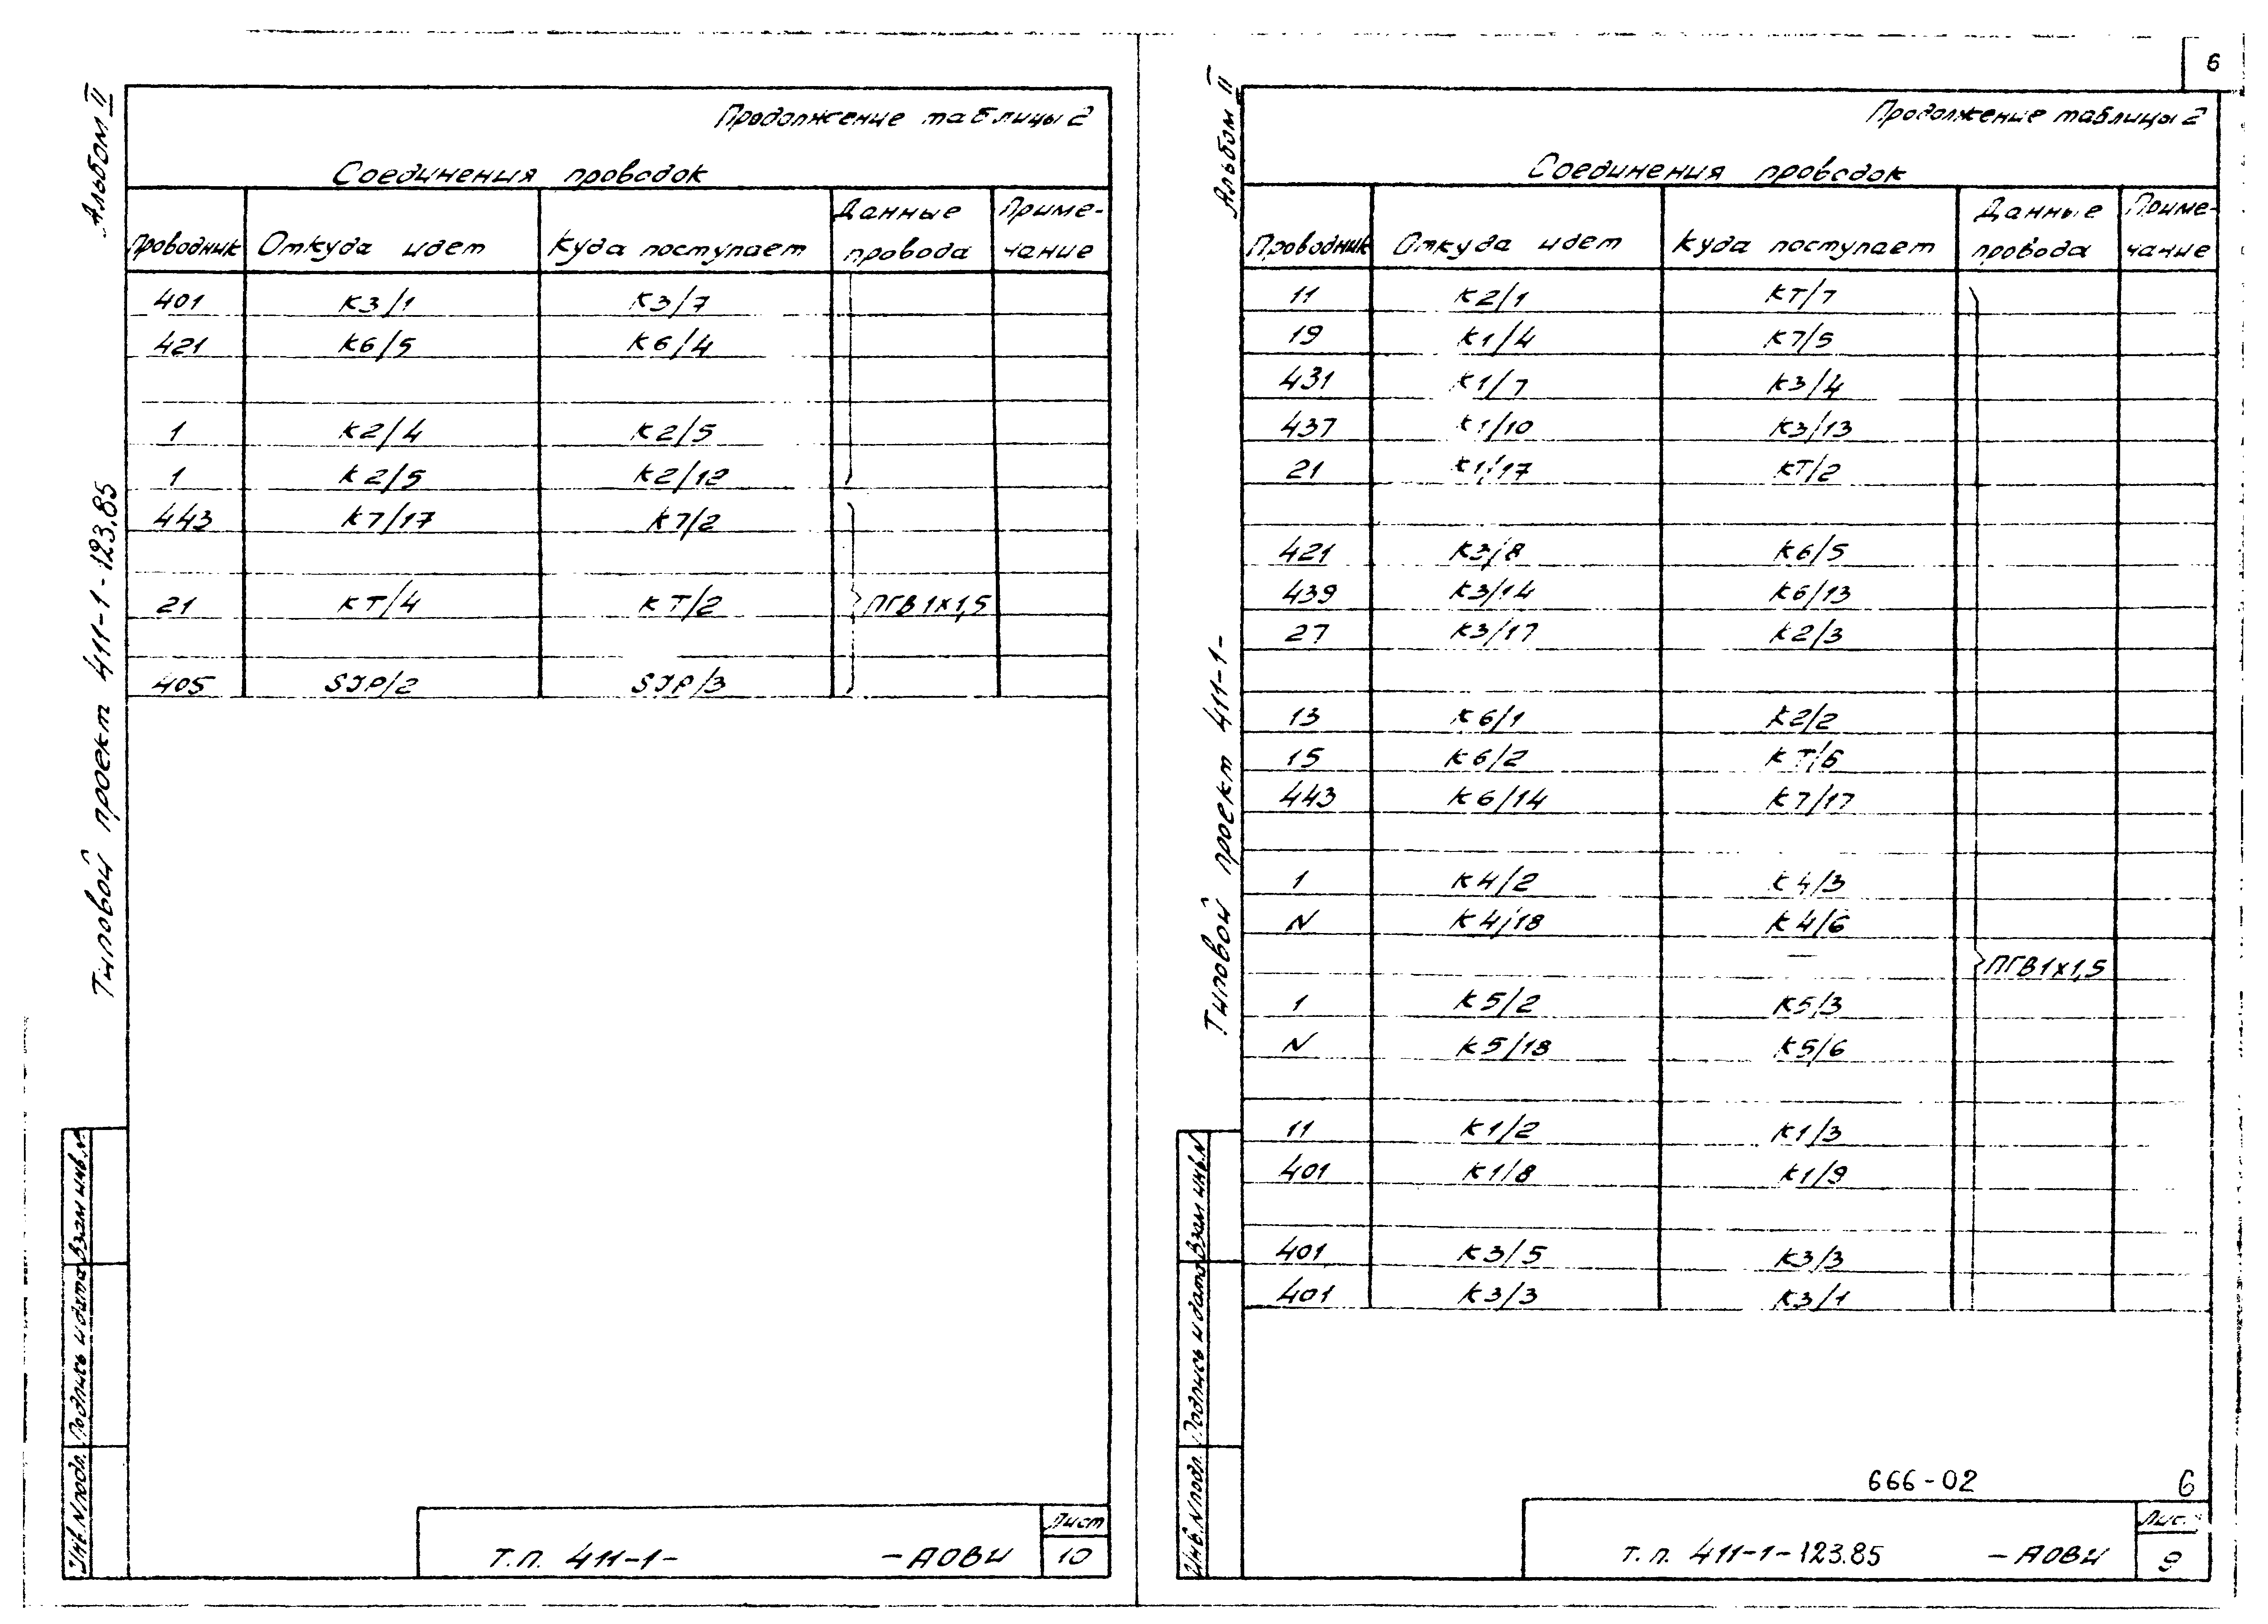 Альбом II
Типовой проект 411-1-123.85
Продолжение таблицы 2
Соединения проводок
Проводник Откуда идет Куда поступает Данные провода Примечание
401 К3/1 К3/7
421 К6/5 К6/4
1 К2/4 К2/5
1 К2/5 К2/12
443 К7/17 К7/2
21 КТ/4 КТ/2 ПГВ 1х1,5
405 SJP/2 SJP/3
Инв. N подл. Подпись и дата Взам инв. N
Лист
Т.П. 411-1- -АОВИ 10
6
Альбом II
Типовой проект 411-1-
Продолжение таблицы 2
Соединения проводок
Проводник Откуда идет Куда поступает Данные провода Примечание
11 К2/1 КТ/7
19 К1/4 К7/5
431 К1/7 К3/4
437 К1/10 К3/13
21 К1/17 КТ/2
421 К3/8 К6/5
439 К3/14 К6/13
27 К3/17 К2/3
13 К6/1 К2/2
15 К6/2 КТ/6
443 К6/14 К7/17
1 К4/2 К4/3
N К4/18 К4/6
ПГВ 1х1,5
1 К5/2 К5/3
N К5/18 К5/6
11 К1/2 К1/3
401 К1/8 К1/9
401 К3/5 К3/3
401 К3/3 К3/1
Инв. N подл. Подпись и дата Взам инв. N
666-02 6
Лист
Т.п. 411-1-123.85 -АОВИ 9